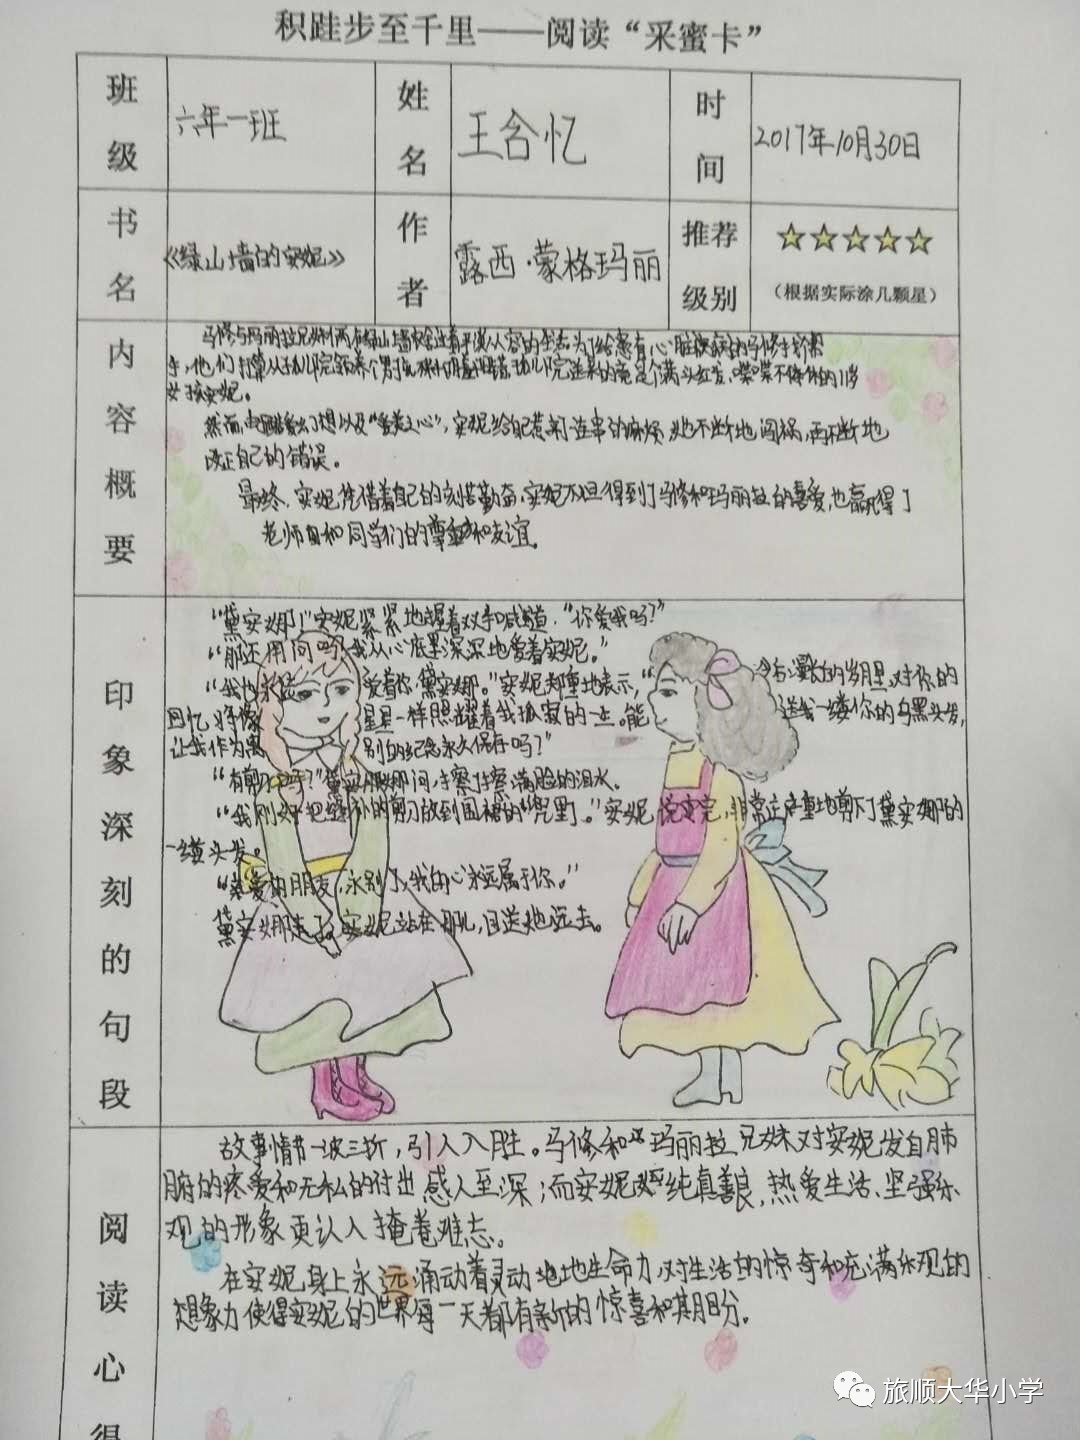 积跬步至千里——阅读“采蜜卡”
班级
六年一班
姓名
王含忆
时间
2017年10月30日
书名
《绿山墙的安妮》
作者
露西·蒙格玛丽
推荐级别
(根据实际涂几颗星)
内容概要
马修与玛丽拉兄妹俩在绿山墙农舍过着平淡从容的生活,为了给患有心脏病的马修找个帮
手,他们打算从孤儿院领养个男孩,孤儿院送来的竟是个满头红发,喋喋不休的11岁
女孩安妮。
然而,由于酷爱幻想以及“爱美之心”,安妮给自己惹来一连串的麻烦,她不断地闯祸,再不断地
改正自己的错误。
最终,安妮凭借着自己的刻苦勤奋,安妮不但得到了马修和玛丽拉的喜爱,也赢得了
老师和同学们的尊重和友谊。
印象深刻的句段
“黛安娜!”安妮紧紧地握着双手喊道,“你爱我吗?”
“那还用问吗?我从心底里深深地爱着安妮。”
“我也永远爱着你,黛安娜。”安妮郑重地表示,“今后漫长的岁月里,对你的
回忆将像星星一样照耀着我孤寂的一生。能送我一缕你的乌黑头发,
让我作为离别的纪念永久保存吗?”
“有剪刀吗?”黛安娜问,擦擦满脸的泪水。
“我刚好把缝补的剪刀放到围裙的“兜里”。”安妮说完,非常庄重地剪下黛安娜的
一缕头发。
“亲爱的朋友,永别了,我的心永远属于你。”
黛安娜走了。安妮站在那儿,目送她远去。
阅读心得
故事情节一波三折,引人入胜。马修和玛丽拉兄妹对安妮发自肺
腑的疼爱和无私的付出感人至深;而安妮纯真善良,热爱生活、坚强乐
观的形象更认人掩卷难忘。
在安妮身上永远涌动着灵动地地生命力,对生活的惊奇和充满乐观的
想象力使得安妮的世界每一天都有新的惊喜和期盼。
旅顺大华小学